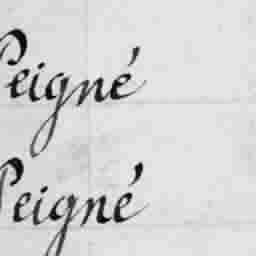 Peigné
Peigné